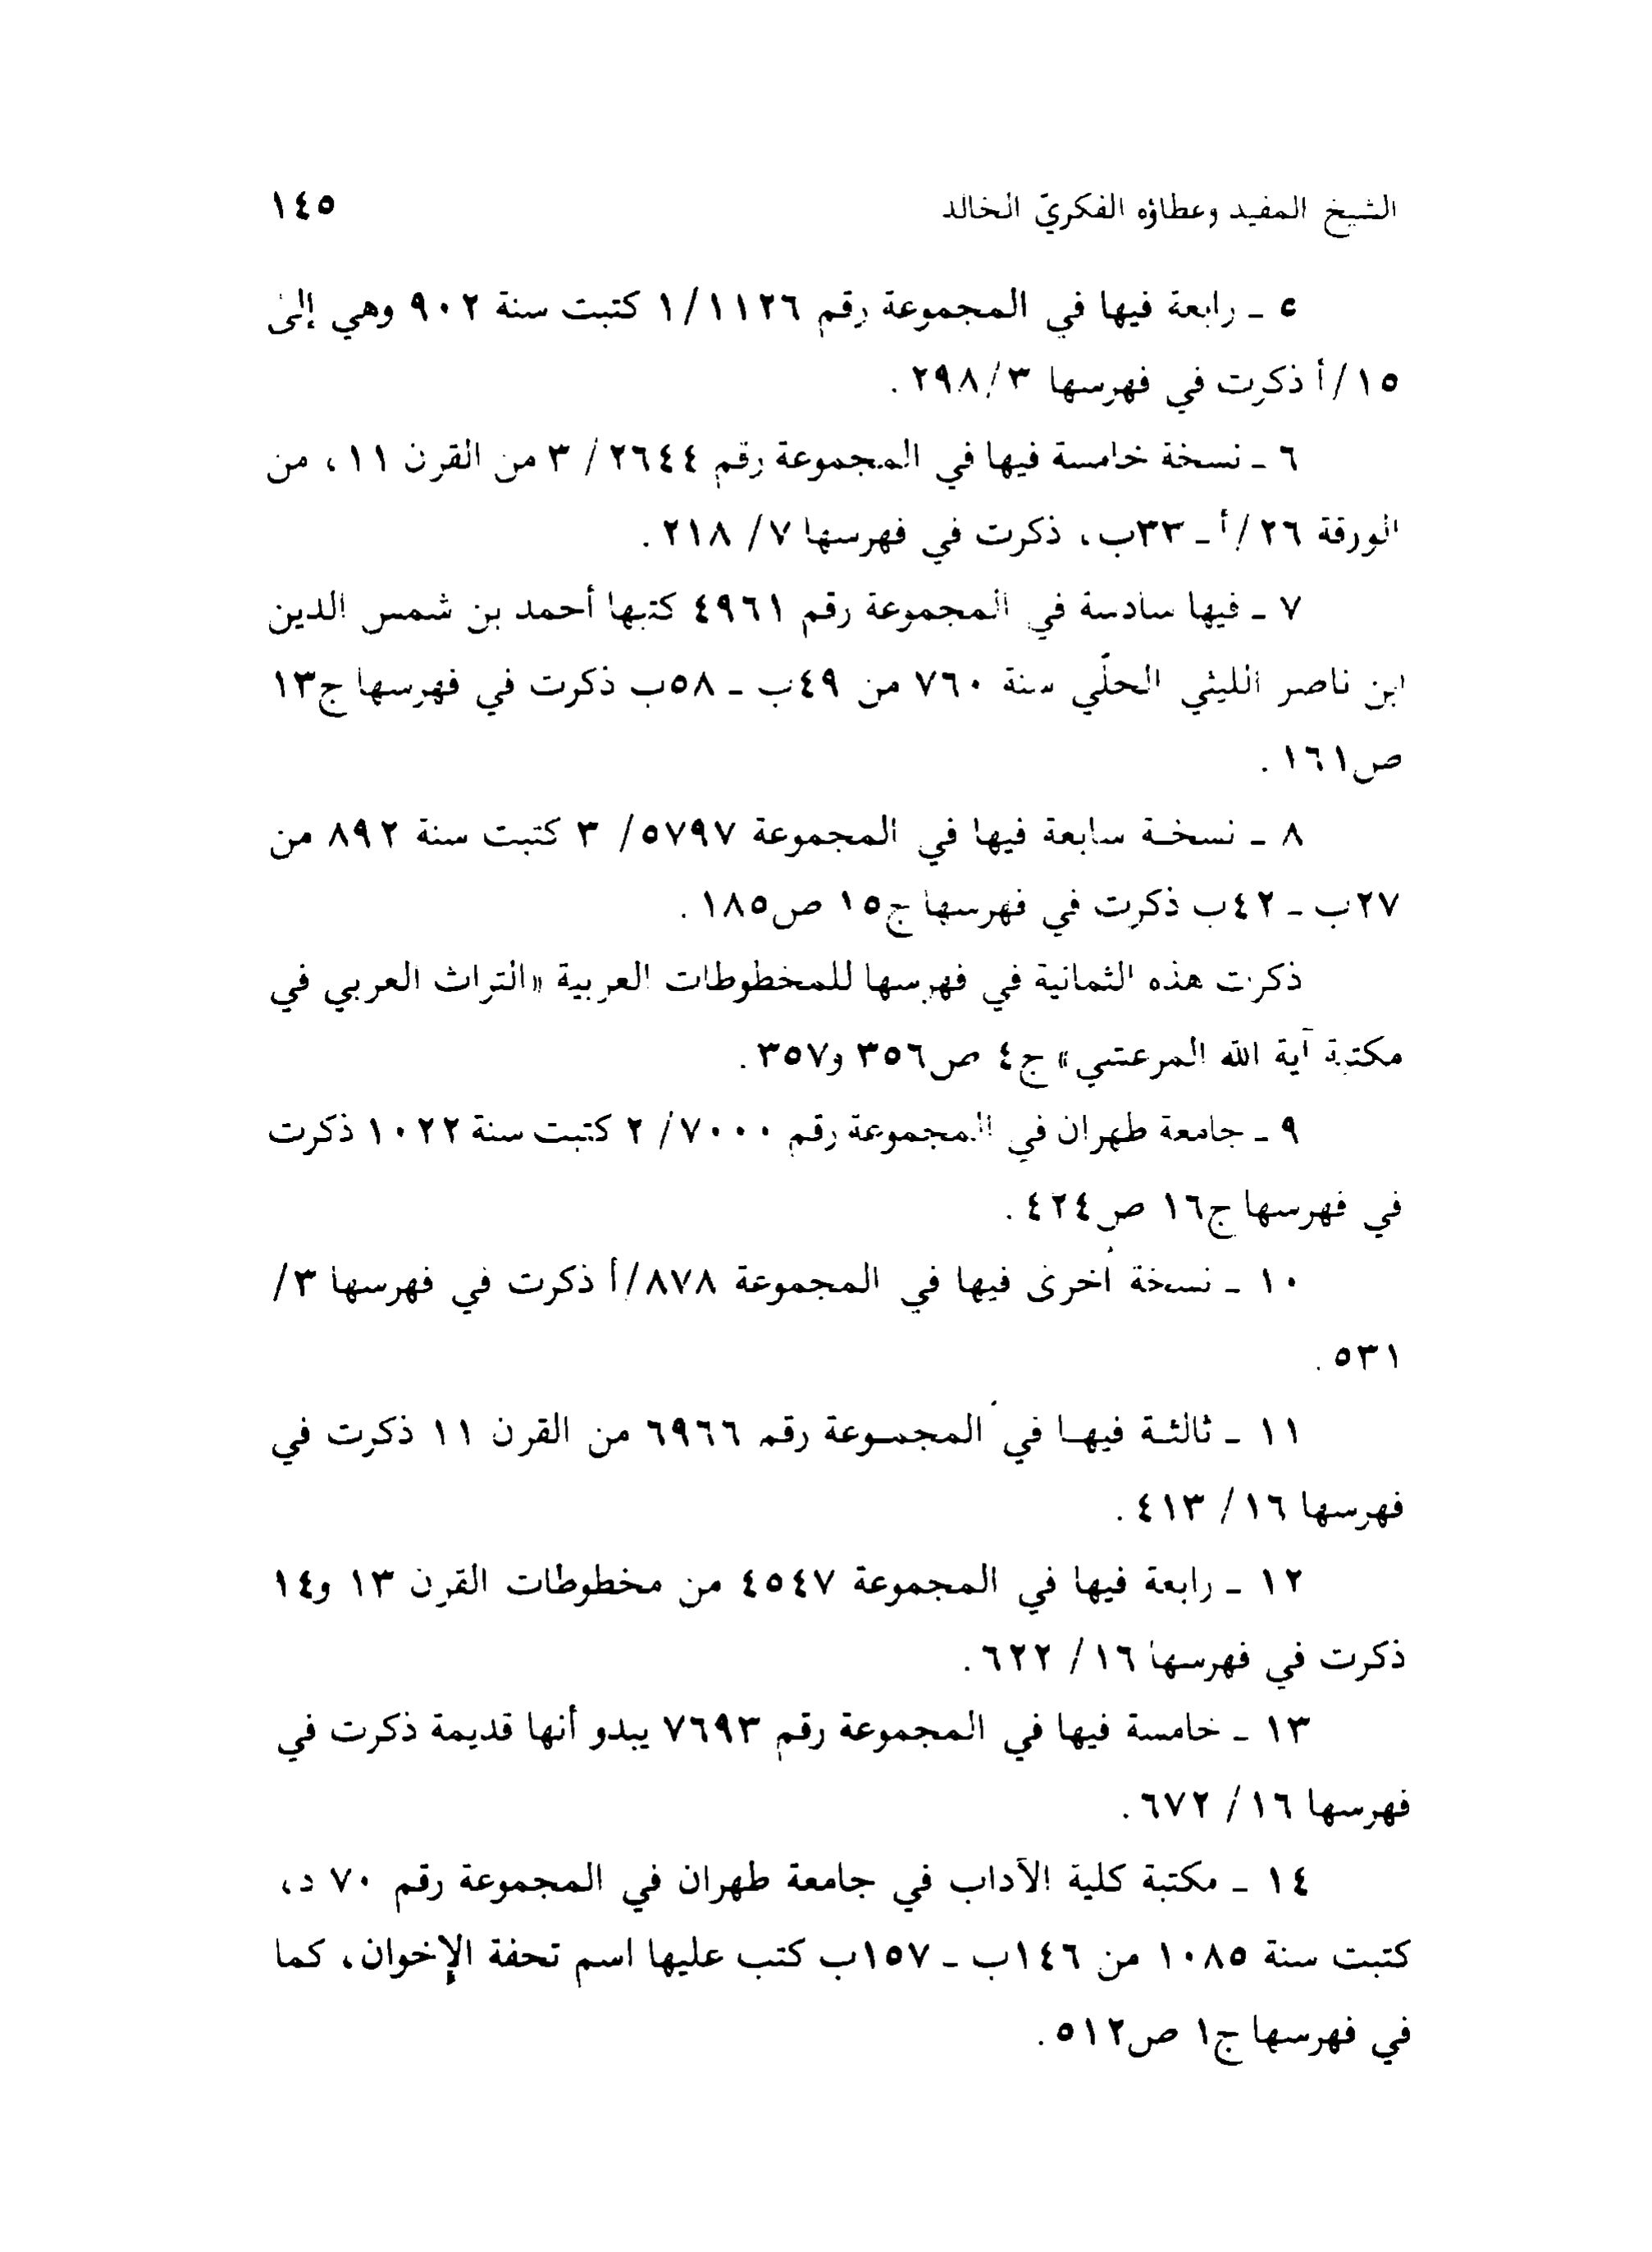 الشيخ المفيد وعطاؤه الفكريّ الخالد ١٤٥
٥ ـ رابعة فيها في المجموعة رقم ١/١١٢٦ كتبت سنة ٩٠٢ وهي إلىٰ
١٥/أ ذكرت في فهرسها ٢٩٨/٣ .
٦ ـ نسخة خامسة فيها في المجموعة رقم ٢٦٤٤ / ٣ من القرن ١١، من
الورقة ٢٦/أ ـ ٣٣ب، ذكرت في فهرسها ٧/ ٢١٨ .
٧ ـ فيها سادسة في المجموعة رقم ٤٩٦١ كتبها أحمد بن شمس الدين
ابن ناصر الليثي الحلّي سنة ٧٦٠ من ٤٩ب ـ ٥٨ب ذكرت في فهرسها ج١٣
ص١٦١ .
٨ ـ نسخة سابعة فيها في المجموعة ٥٧٩٧/ ٣ كتبت سنة ٨٩٢ من
٢٧ب ـ ٤٢ب ذكرت في فهرسها ج١٥ ص١٨٥ .
ذكرت هذه الثمانية في فهرسها للمخطوطات العربية «التراث العربي في
مكتبة آية الله المرعشي» ج٤ ص٣٥٦ و٣٥٧ .
٩ ـ جامعة طهران في المجموعة رقم ٧٠٠٠/ ٢ كتبت سنة ١٠٢٢ ذكرت
في فهرسها ج١٦ ص٤٢٤ .
١٠ ـ نسخة أُخرىٰ فيها في المجموعة ٨٧٨/أ ذكرت في فهرسها ٣/
٥٣١ .
١١ ـ ثالثة فيها في المجموعة رقم ٦٩٦٦ من القرن ١١ ذكرت في
فهرسها ١٦/ ٤١٣ .
١٢ ـ رابعة فيها في المجموعة ٤٥٤٧ من مخطوطات القرن ١٣ و١٤
ذكرت في فهرسها ١٦/ ٦٢٢ .
١٣ ـ خامسة فيها في المجموعة رقم ٧٦٩٣ يبدو أنها قديمة ذكرت في
فهرسها ١٦/ ٦٧٢ .
١٤ ـ مكتبة كلية الآداب في جامعة طهران في المجموعة رقم ٧٠ د،
كتبت سنة ١٠٨٥ من ١٤٦ب ـ ١٥٧ب كتب عليها اسم تحفة الإخوان، كما
في فهرسها ج١ ص٥١٢ .